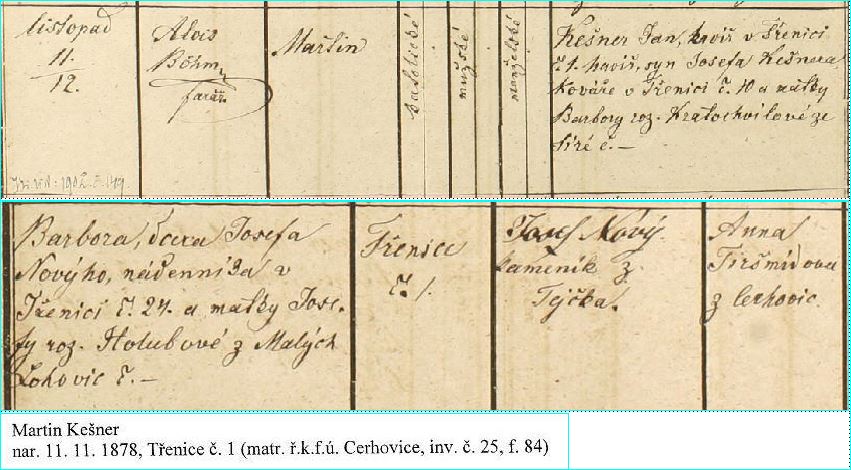 listopad
11.
12.
Alois
Böhm,
farář.
Martin
katolické
mužské
manželské
Kešner Jan, havíř v Třenici
č. 1. havíř, syn Josefa Kešnera
kováře v Třenici č. 10 a matky
Barbory roz. Kratochvilové ze
Siré č. –
Barbora, dcera Josefa
Novýho, nádenníka v
Třenici č. 24. a matky Jose-
fy roz. Holubové z Malých
Lohovic č. –
Třenice
č. 1.
Josef Nový
kameník z
Týčka.
Anna
z Cerhovic.
Martin Kešner
nar. 11. 11. 1878, Třenice č. 1 (matr. ř.k.f.ú. Cerhovice, inv. č. 25, f. 84)